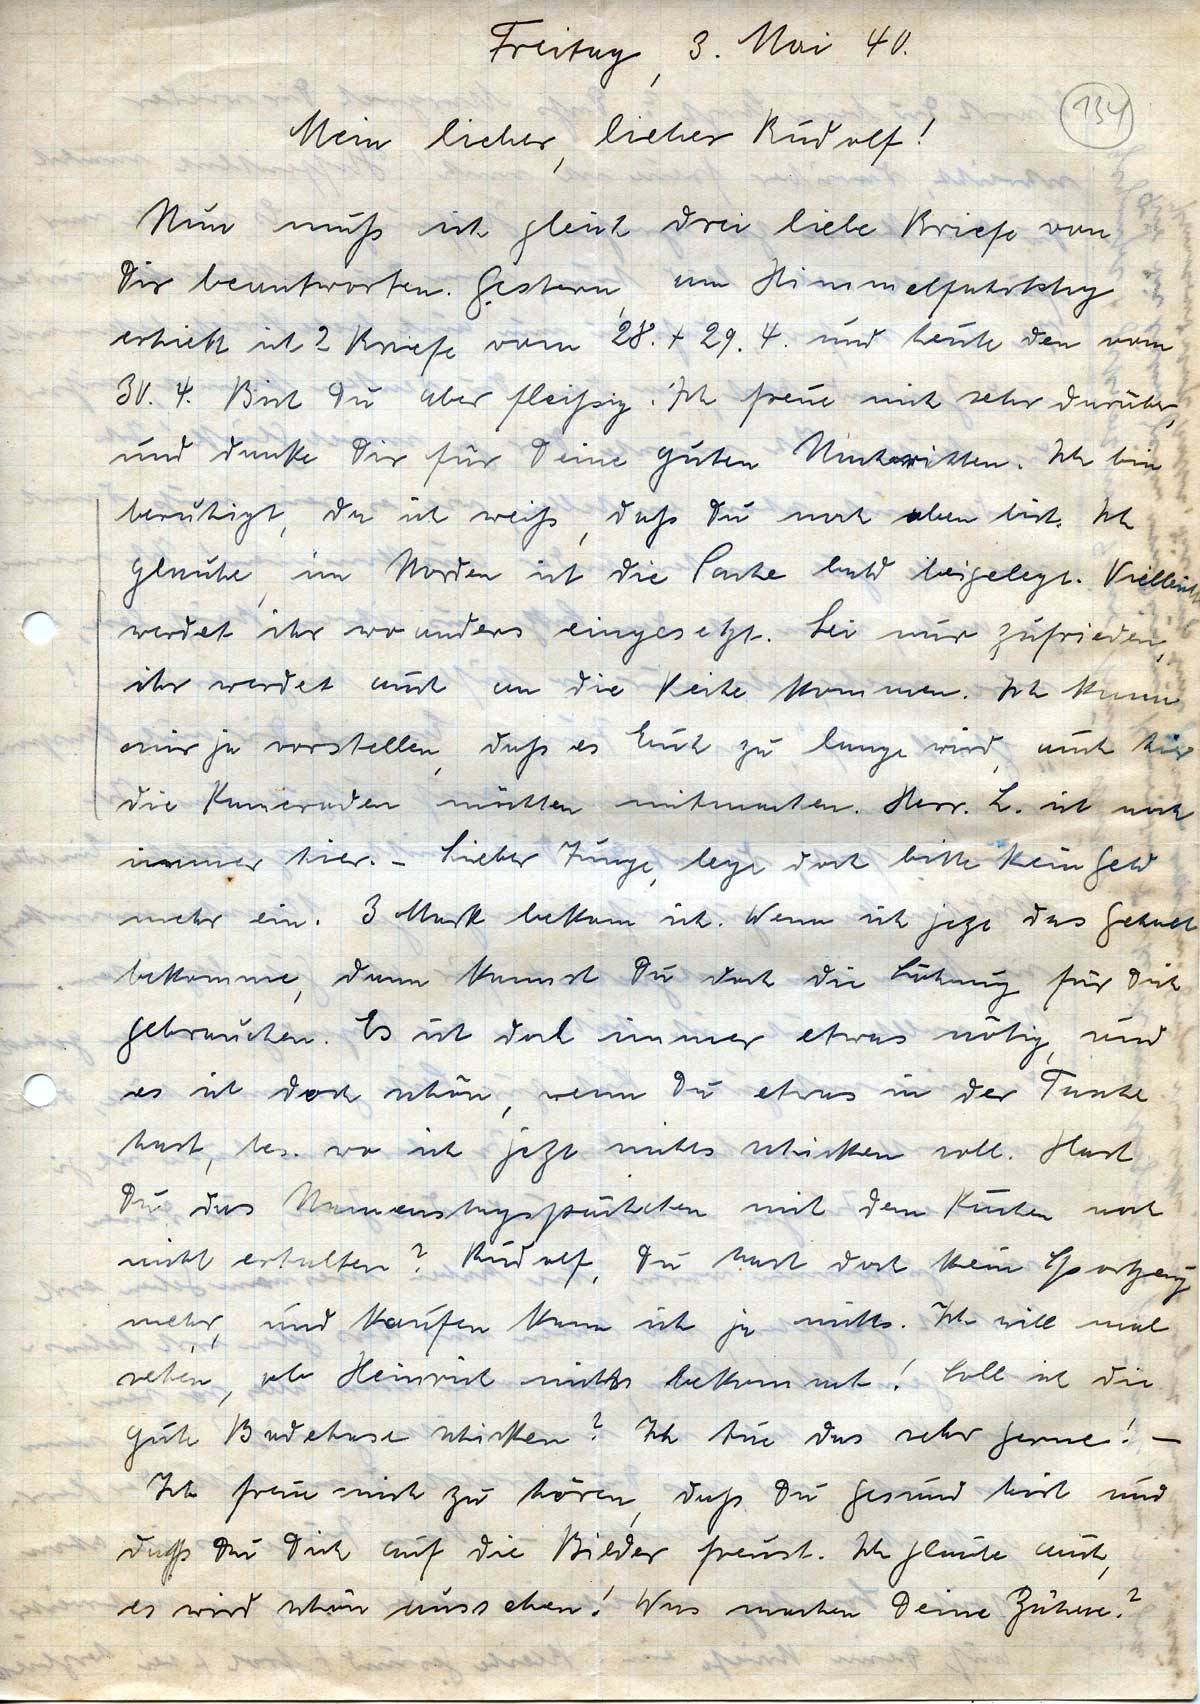 Freitag, 3. Mai 40.
134
Mein lieber, lieber Rudolf!
Nun muß ich gleich drei liebe Briefe von
Dir beantworten. Gestern, am Himmelfahrtstag
erhielt ich 2 Briefe vom 28. + 29. 4. und heute den vom
30. 4. Bist Du aber fleißig. Ich freue mich sehr darüber,
und danke Dir für Deine guten Nachrichten. Ich bin
beruhigt, da ich weiß, daß Du noch oben bist. Ich
glaube, im Norden ist die Sache bald beigelegt. Vielleicht
werdet ihr wo anders eingesetzt. Sei nur zufrieden,
ihr werdet auch an die Reihe kommen. Ich kann
mir ja vorstellen, daß es Euch zu lange wird, auch hier
die Kameraden möchten mitmachen. Herr. L. ist noch
immer hier. – Lieber Junge, lege doch bitte kein Geld
mehr ein. 3 Mark bekam ich. Wenn ich jetzt das Gehalt
bekomme, dann kannst Du doch die Löhnung für Dich
gebrauchen. Es ist doch immer etwas nötig, und
es ist doch schön, wenn Du etwas in der Tasche
hast, bes. wo ich jetzt nichts schicken soll. Hast
Du das Namenstagspäckchen mit dem Kuchen noch
nicht erhalten? Rudolf, Du hast doch kein Sportzeug
mehr, und kaufen kann ich ja nichts. Ich will mal
sehen, ob Heinrich nichts bekommt! Soll ich die
gute Badehose schicken? Ich tue das sehr gerne! –
Ich freue mich zu hören, daß Du gesund bist und
daß Du Dich auf die Bilder freust. Ich glaube auch,
es wird schön aussehen! Was machen Deine Zähne?